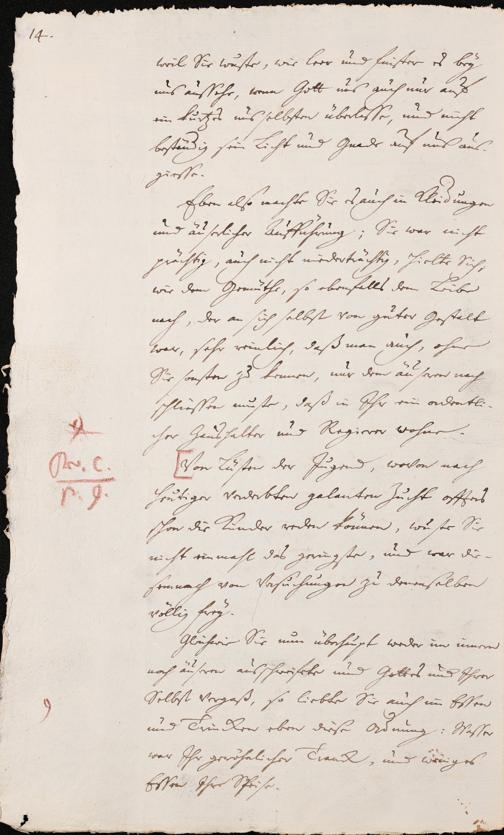 14.
weil Sie wuste, wie leer und finster es bey
uns aussehe, wenn Gott uns auch nur auf
ein kurtzes uns selbsten überlasse, und nicht
beständig sein Licht und Gnade auf uns aus-
giesse.
Eben also machte Sie es auch in Kleidungen
und äuserlicher Aufführung; Sie war nicht
prächtig, auch nicht niederträchtig, hielte Sich,
wie dem Gemüthe, so ebenfalls dem Leibe
nach, der an sich selbst von guter Gestalt
war, sehr reinlich, daß man auch, ohne
Sie sonsten zu kennen, nur dem äuseren nach
schliessen muste, daß in Ihr ein ordentli-
cher Haushalter und Regierer wohne.
[Von Lüsten der Jugend, wovon nach
heutiger verderbten galanten Zucht offters
schon die Kinder reden können, wuste Sie
nicht einmahl das geringste, und war die-
semnach von Versuchungen zu denenselben
völlig frey.
p. 9.
Gleichwie Sie nun überhaupt weder im innern
noch äuseren ausschweifete und Gottes und Ihrer
Selbst vergaß, so liebte Sie auch im Essen
und Trincken eben diese Ordnung: Wasser
war Ihr gewöhnlicher Tranck, und weniges
Essen Ihre Speise.